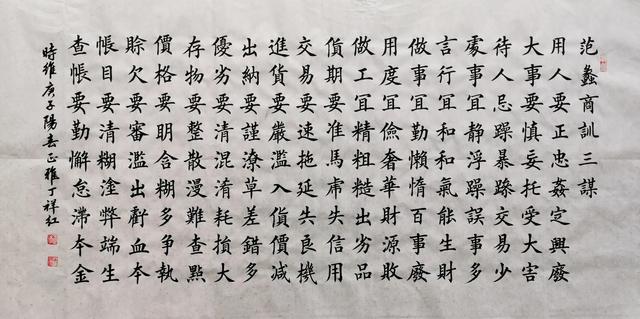 范蠡商訓三謀
用人要正忠姦定興廢
大事要慎妄托受大害
待人忌躁暴躁交易少
處事宜静浮躁誤事多
言行宜和和氣能生財
做事宜勤懶惰百事廢
用度宜儉奢華財源敗
做工宜精粗糙出劣品
貨期要准馬虎失信用
交易要速拖延失良機
進貨要嚴濫入貨價减
出納要謹潦草差錯多
優劣要清混淆耗損大
存物要整散漫難查點
價格要明含糊多争執
賒欠要審濫出虧血本
帳目要清糊塗弊端生
查帳要勤懈怠滞本金
時維庚子陽春正雅丁祥紅